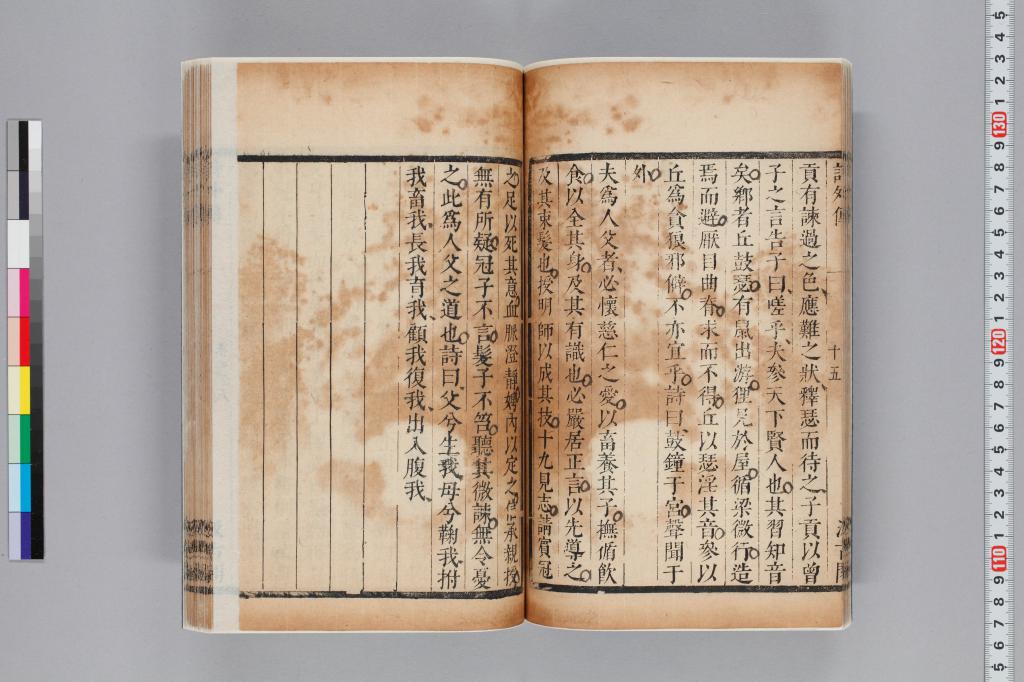 詩外傳
十五
貢有諫過之色應難之狀釋瑟而待之子貢以曾
子之言告子曰嗟乎夫參天下賢人也其習知音
矣鄉者丘鼓瑟有鼠出游狸見於屋循梁微行造
焉而避厭目曲脊求而不得丘以瑟淫其音參以
丘爲貪狼邪僻不亦宜乎詩曰鼓鐘于宮聲聞于
外
夫爲人父者必懷慈仁之愛以畜養其子撫循飲
食以全其身及其有識也必嚴居正言以先導之
及其束髮也授明師以成其技十九見志請賓冠
之足以死其意血脈澄靜娉內以定之信承親授
無有所疑冠子不言髮子不笞聽其微諫無令憂
之此爲人父之道也詩曰父兮生我母兮鞠我拊
我畜我長我育我顧我復我出入腹我